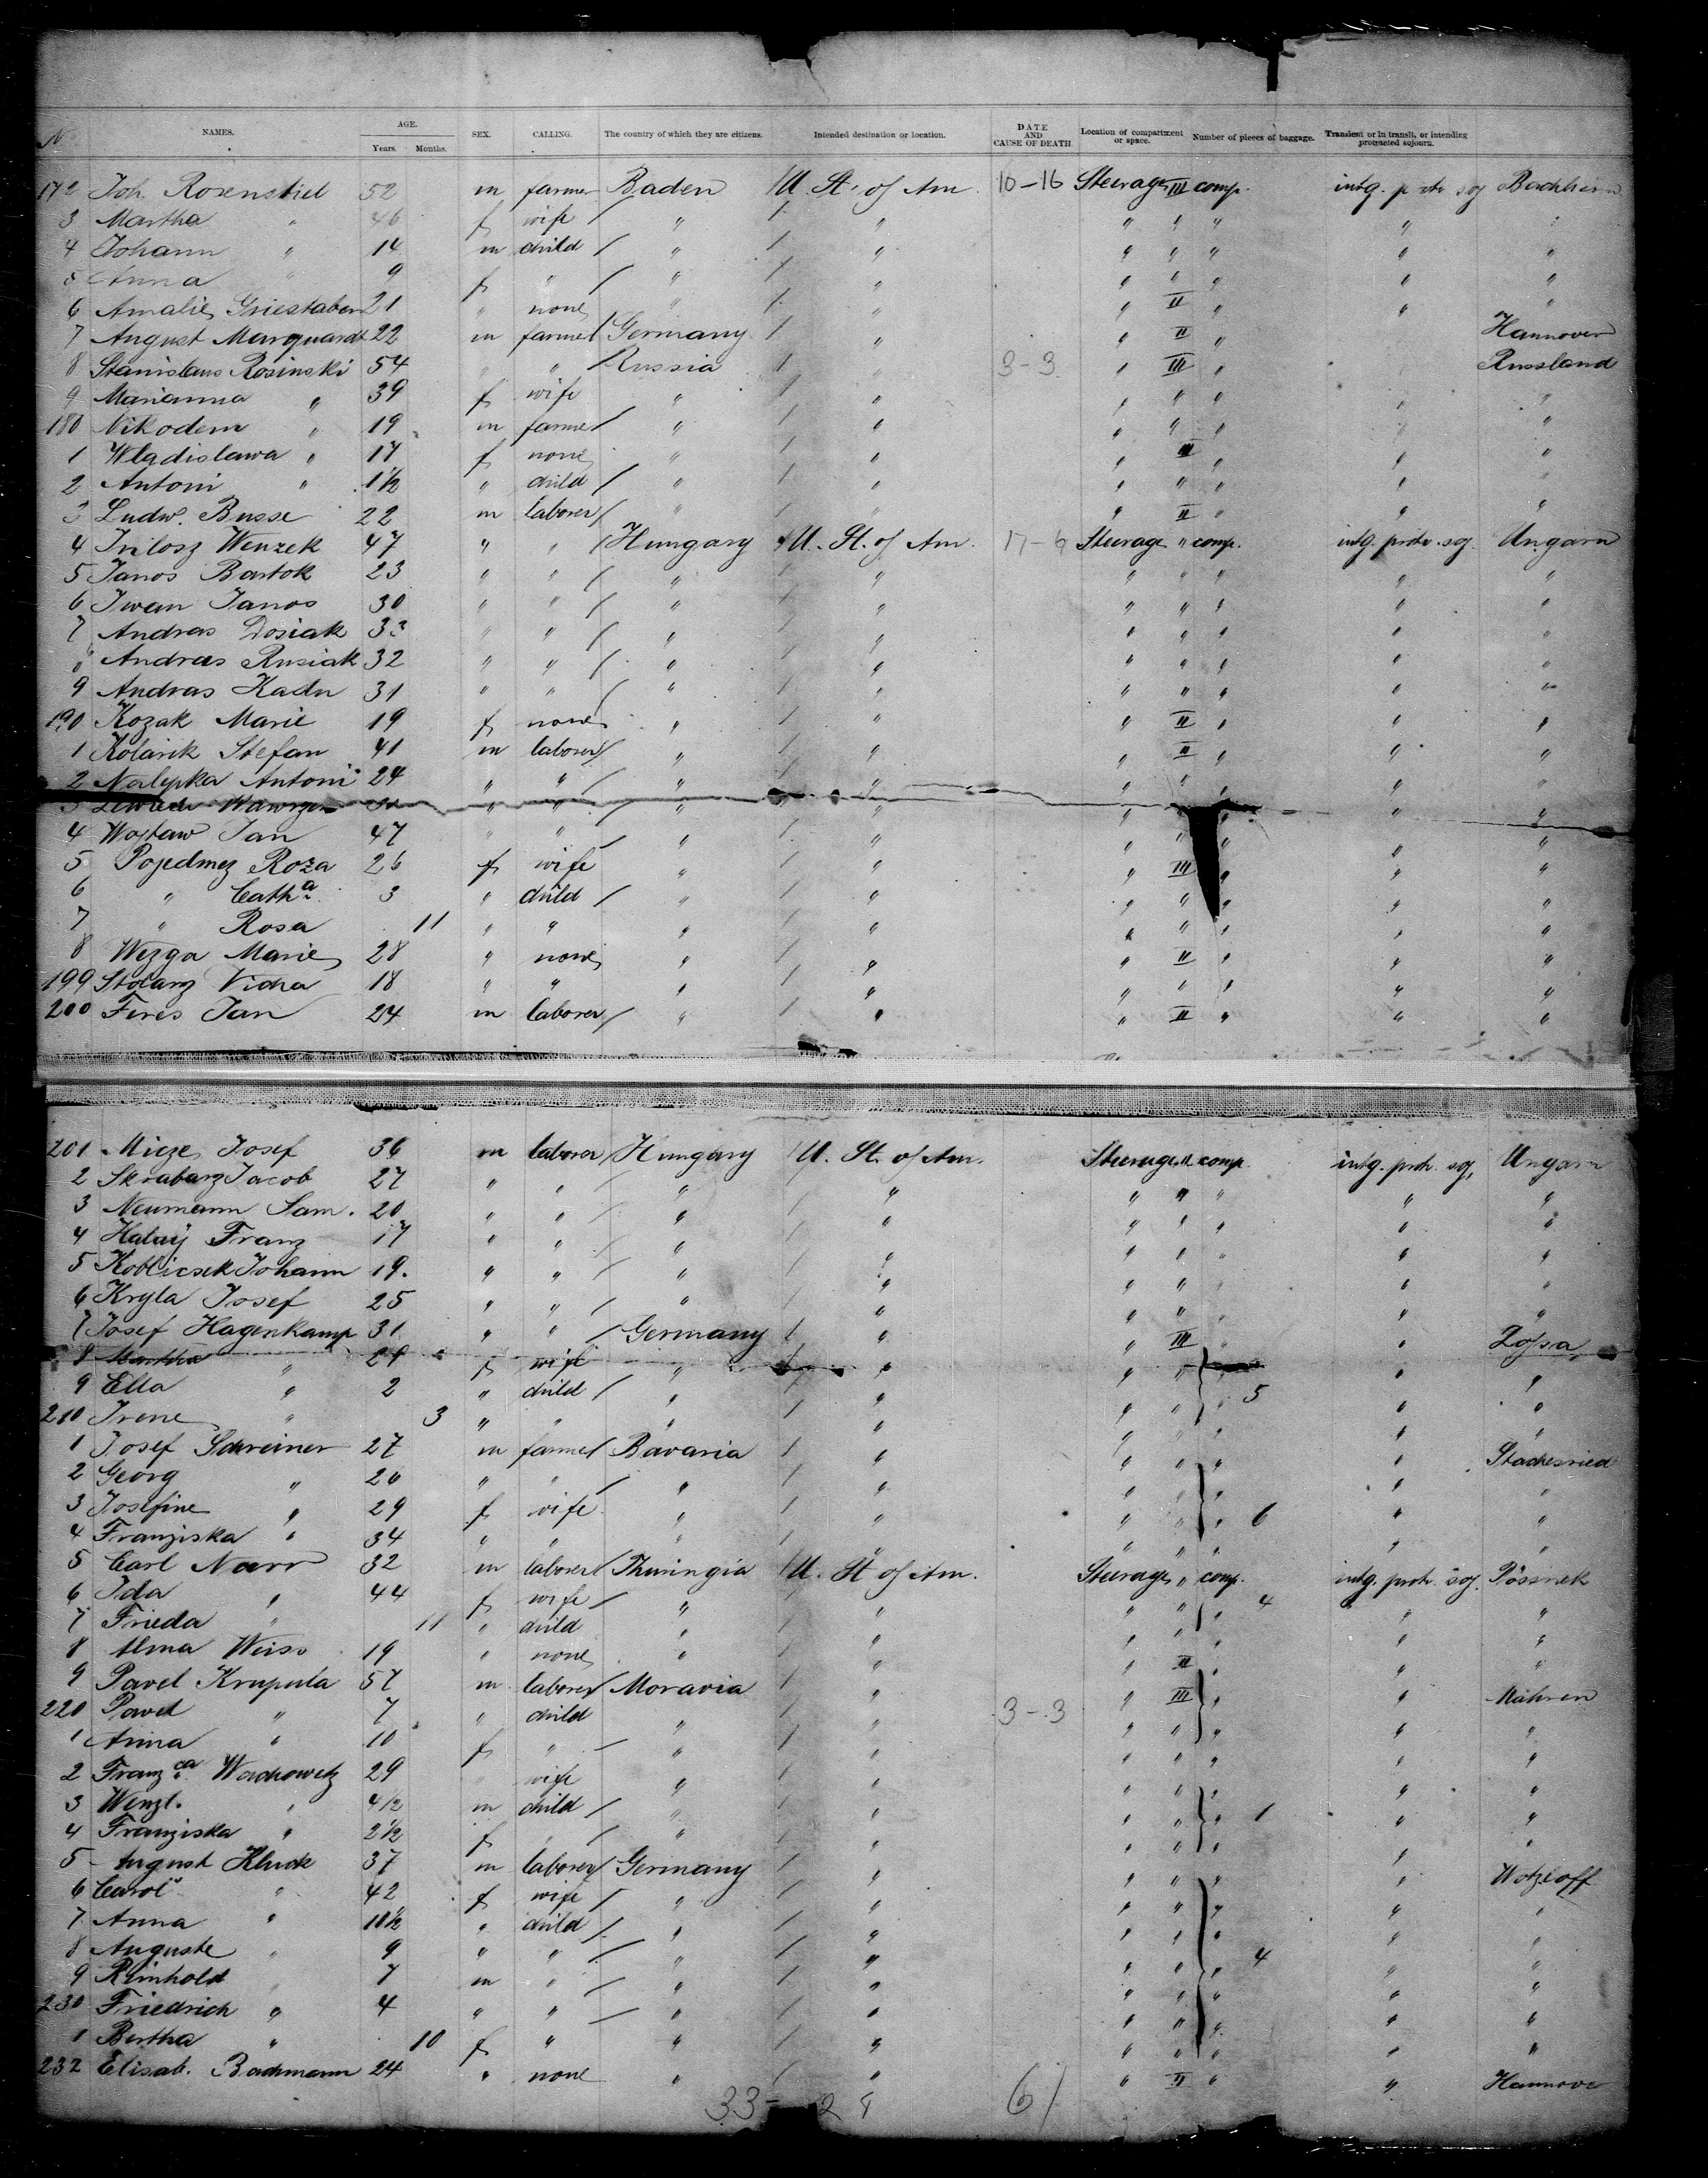 N NAMES. AGE. Years. Months. SEX. CALLING. The country of which they are citizens. Intended destination or location. DATE AND CAUSE OF DEATH. Location of compartment or space. Number of pieces of baggage. Transient or in transit, or intending protracted sojourn.
172 Joh. Rosenstiel 52 m farmer Baden U. St. of Am. 10-16 Steerage III comp. intg. protr. soj
3 Martha " 46 f wife " " " " " "
4 Johann " 14 m child " " " " " " "
5 Anna " 9 f " " " " " " " "
6 Amalie 21 " none " " " II " " "
7 August Marquardt 22 m farmer Germany " " II " Hannover
8 Stanislaus Rosinski 54 " " Russia " 3-3 " III " Russland
9 Marianna " 39 f wife " " " " " " "
180 Nikodem " 19 m farmer " " " " " " "
1 Wladislawa " 17 f none " " " III " " "
2 Antoni " 1½ " child " " " " " " "
3 Ludw. Busse 22 m laborer " " " II " " "
4 Wenzek 47 " " Hungary U. St. of Am. 17-6 Steerage " comp. intg. protr. soj. Ungarn
5 Janos Bartok 23 " " " " " " " " "
6 Iwan Janos 30 " " " " " " " " "
7 Andras Dosiak 33 " " " " " " " " "
8 Andras Rusiak 32 " " " " " " " " "
9 Andras Kadu 31 " " " " " " " " "
190 Kozak Marie 19 f none " " " II " " "
1 Kolarik Stefan 41 m laborer " " " II " " "
2 Nalepka Antoni 24 " " " " " " " " "
3 " " " " " " " "
4 Woslaw Jan 47 " " " " " " " " "
5 Roza 26 f wife " " " III " " "
6 " Catha 3 " child " " " " " " "
7 " Rosa 11 " " " " " " " " "
8 Wezga Marie 28 " none " " " II " " "
199 18 " " " " " " " " "
200 Feres Jan 24 m laborer " " " II " " "
201 Micze Josef 36 m laborer Hungary U. St. of Am. Steerage II comp. intg. protr. soj. Ungarn
2 Jacob 27 " " " " " " " " "
3 Neumann Sam. 20 " " " " " " " " "
4 Franz 17 " " " " " " " " "
5 Koblicsek Johann 19. " " " " " " " " "
6 Kryla Josef 25 " " " " " " " " "
7 Josef Hagenkamp 31 " " Germany " " III " "
8 Martha " 29 f wife " " " " " "
9 Ella " 2 " child " " " " " 5 " "
210 Irene " 3 " " " " " " " " "
1 Josef Schreiner 27 m farmer Bavaria " " " " " Stachesried
2 Georg " 20 " " " " " " " " "
3 Josefine " 29 f wife " " " " " 6 " "
4 Franziska " 34 " " " " " " " " "
5 Carl Narr 32 m laborer Thuringia U. St of Am. Steerage " comp. intg. protr. soj. Pössnek
6 Ida " 44 f wife " " " " " 4 " "
7 Frieda " 11 " child " " " " " " "
8 Alma Weiss 19 " none " " " II " " "
9 Pavel Krupula 57 m laborer Moravia " " III " " Mähren
220 Pavel " 7 " child " " 3-3 " " " " "
1 Anna " 10 f " " " " " " " "
2 Franzca Wachowetz 29 " wife " " " " " " "
3 Wenzl. " 4½ m child " " " " " 1 " "
4 Franziska " 2½ f " " " " " " " "
5 August Kluck 37 m laborer Germany " " " " " Wotzloff
6 Carol " 42 f wife " " " " " " "
7 Anna " 10½ " child " " " " " " "
8 Auguste " 9 " " " " " " " 4 " "
9 Reinhold " 7 m " " " " " " " "
230 Friedrich " 4 " " " " " " " " "
1 Bertha " 10 f " " " " " " " "
232 Elisab. Bachmann 24 " none " " " II " " Hannover
33- 28 61